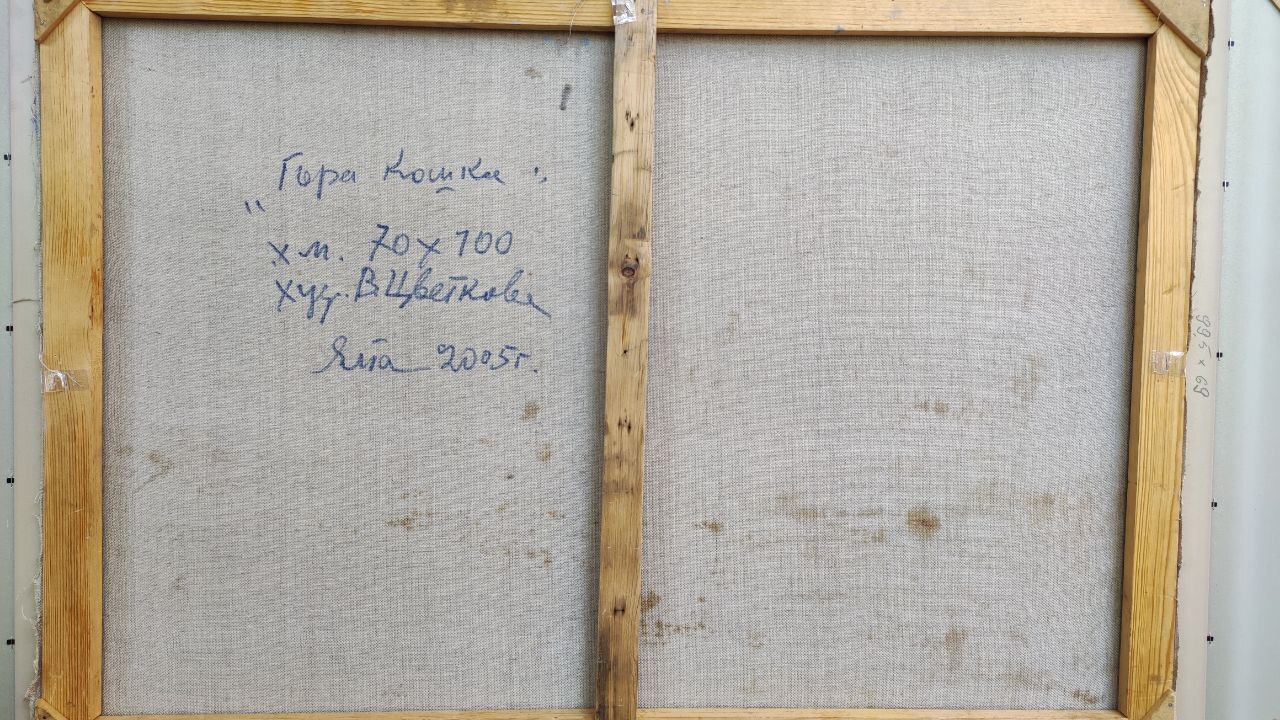 „Гора Кошка“
х.м. 70 х 100
худ. В. Цветкова
Ялта 2005г.
99,5 х 69